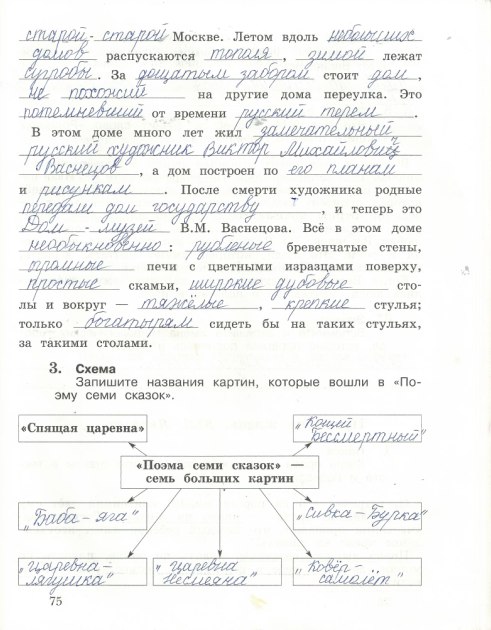 старой - старой Москве. Летом вдоль небольших
домов распускаются тополя, зимой лежат
сугробы. За дощатым забором стоит дом,
не похожий на другие дома переулка. Это
потемневший от времени русский терем.
В этом доме много лет жил замечательный
русский художник Виктор Михайлович
Васнецов, а дом построен по его планам
и рисункам. После смерти художника родные
передали дом государству, и теперь это
Дом - музей В.М. Васнецова. Всё в этом доме
необыкновенно: рубленые бревенчатые стены,
огромные печи с цветными изразцами поверху,
простые скамьи, широкие дубовые сто-
лы и вокруг — тяжёлые, крепкие стулья;
только богатырям сидеть бы на таких стульях,
за такими столами.
3. Схема
Запишите названия картин, которые вошли в «По-
эму семи сказок».
«Спящая царевна»
"Кощей
Бессмертный"
«Поэма семи сказок» —
семь больших картин
"Баба - яга"
"Сивка - Бурка"
"Царевна-
лягушка"
"Царевна
Несмеяна"
"Ковёр-
самолёт"
75